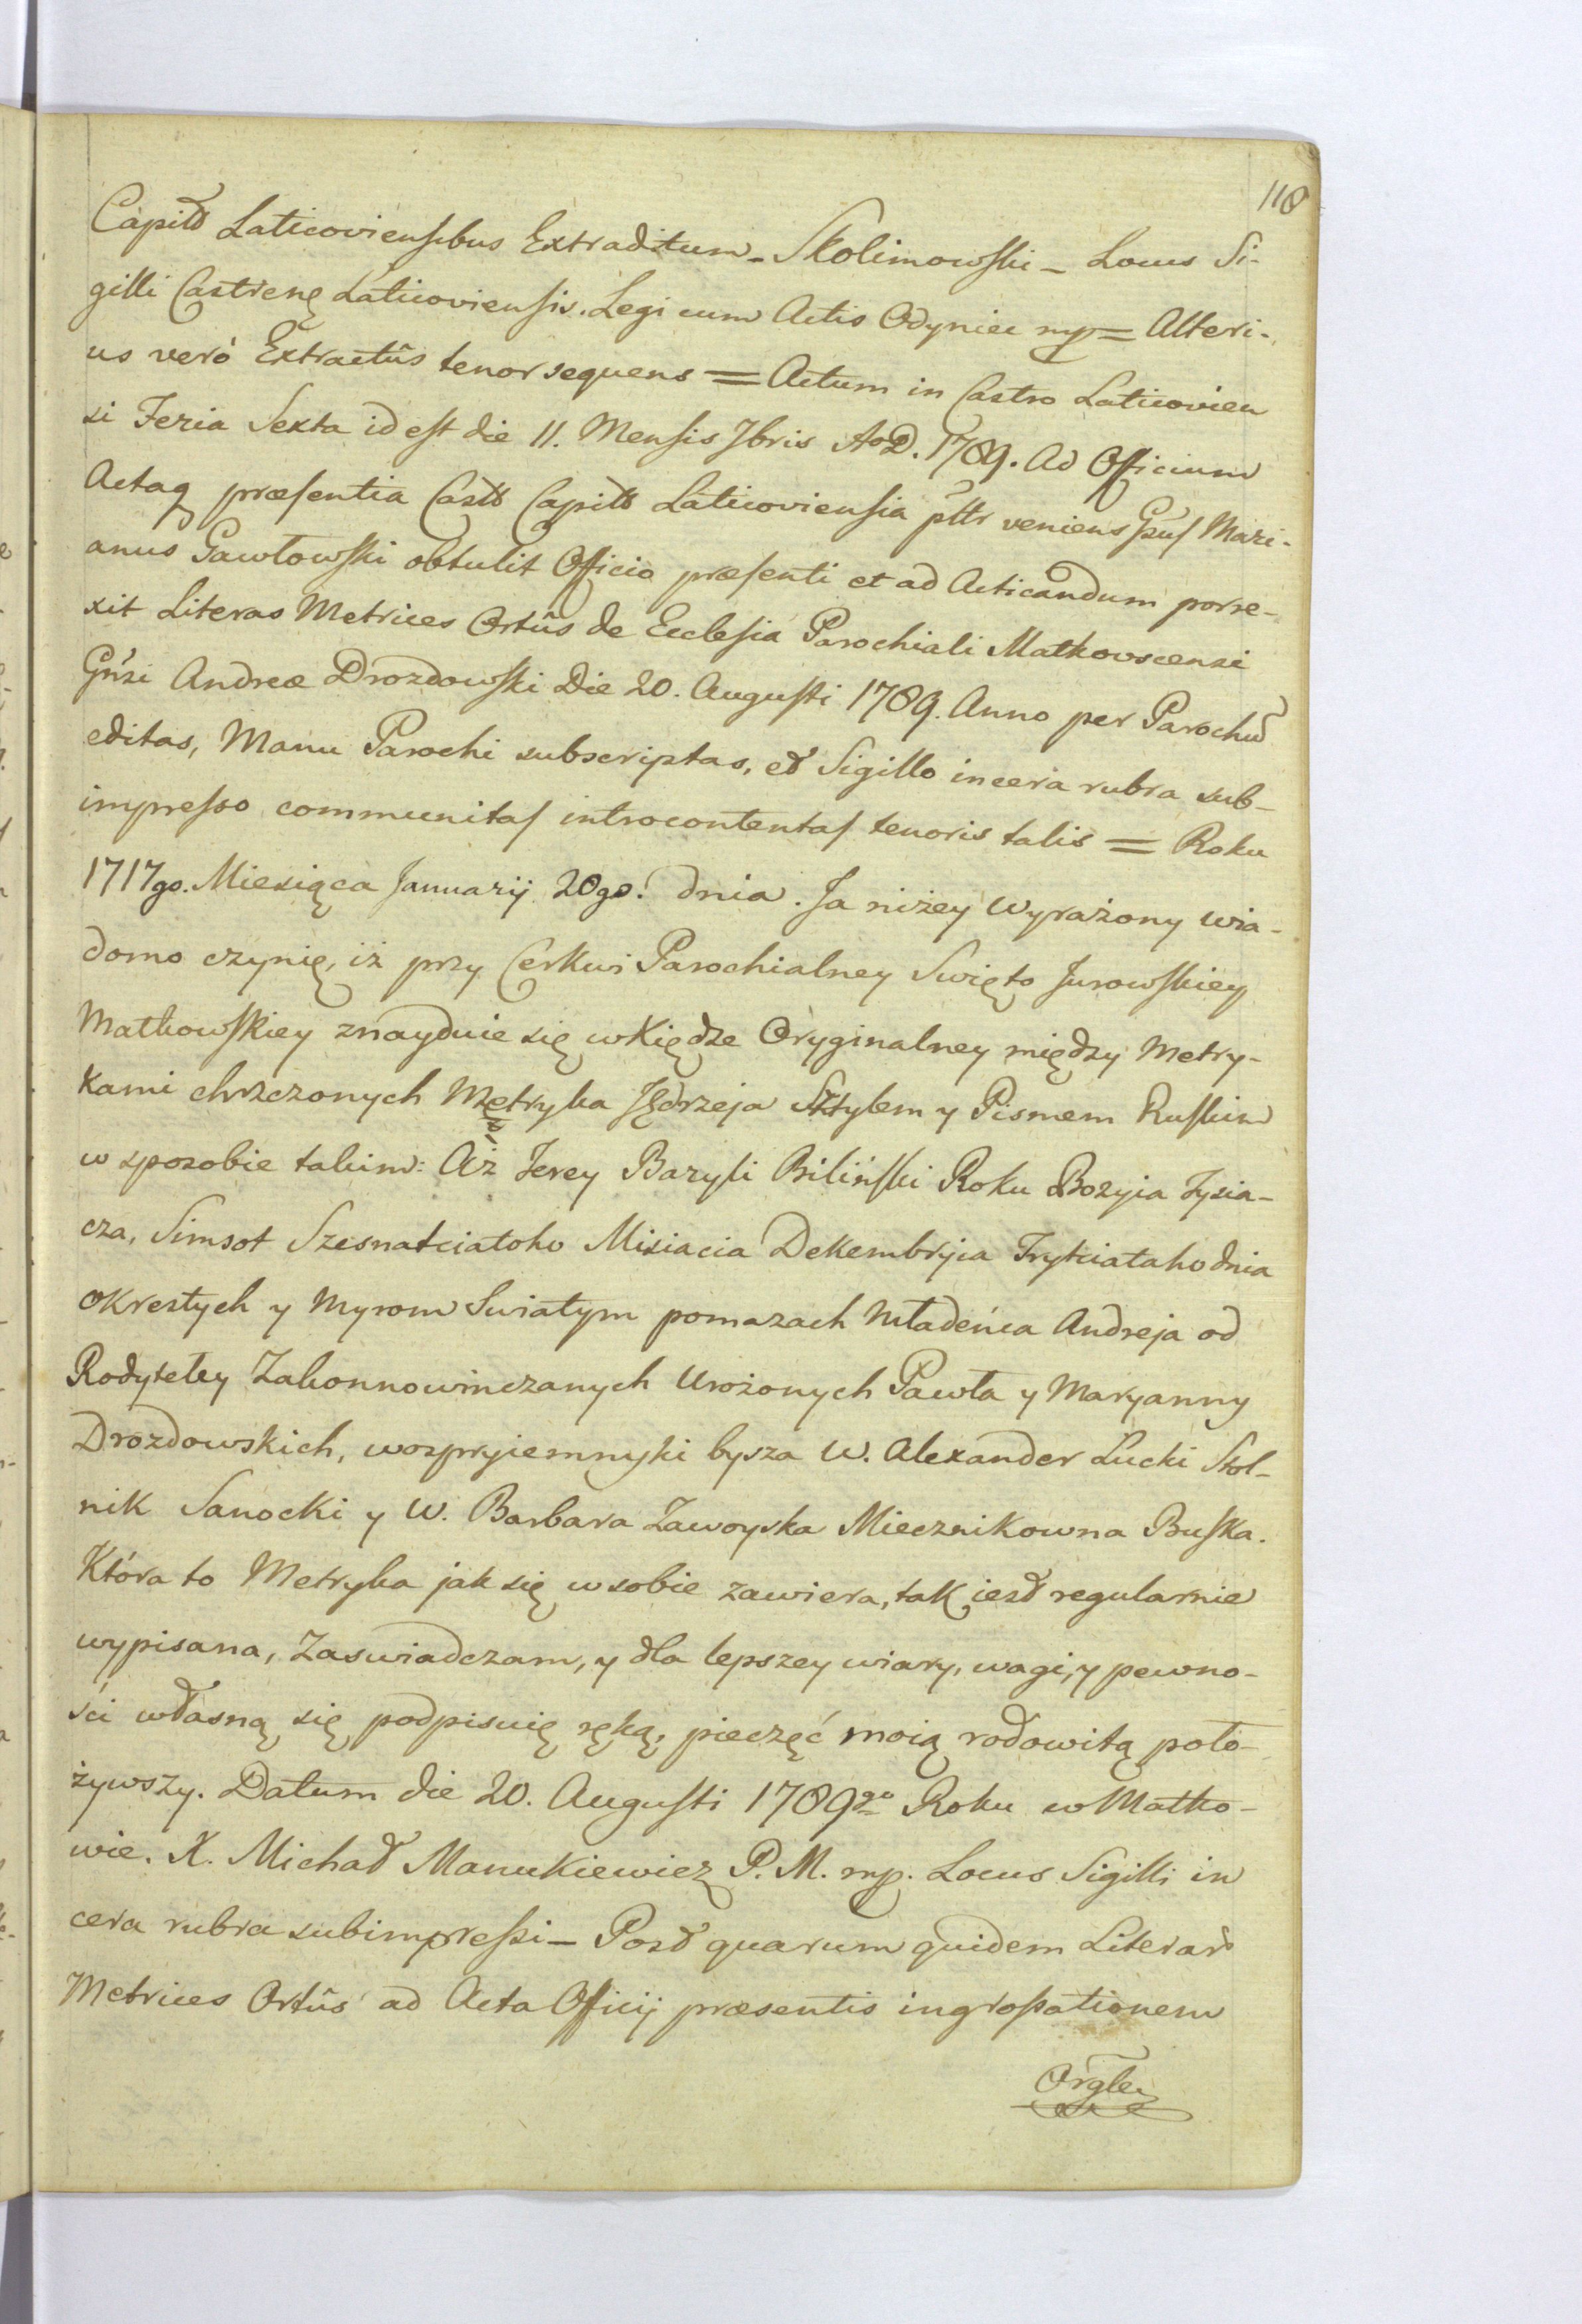 118
Capitd Laticoviensibus Extraditum - Skolimowski - Locus Si-
gilli Castrenę Laticoviensis. Legi cum Actis Odyniec mp = Alteri-
us verò Extractûs tenor sequens = Actum in Castro Laticovien
si Feria Sexta id est die 11. Mensis 7bris AoD. 1789. Ad Officium
Actaq præsentia Castr Capitd Laticoviensia pttr veniens Gsus Mari-
anus Gawłowski obtulit Officio præsenti et ad Acticandum porre-
xit Literas Metrices Ortûs de Ecclesia Parochiali Matkowscensi
Gńsi Andreæ Drozdowski Die 20. Augusti 1789. Anno per Parochū
editas, Manu Parochi subscriptas, et Sigillo in cera rubra sub-
impresso communitas introcontentas tenoris talis = Roku
1717go. Miesiąca Januarij 20go. dnia. Ja niżey wyrażony wia-
domo czynię, iż przy Cerkwi Parochialney Swięto Jurowskiey
Matkowskiey znayduie się w Kiędze Oryginalney między Metry-
kami chrzczonych Metryka Jędrzeja Sztylem y Pismem Ruskim
w sposobie takim: Aż Jerey Bazyli Biliński Roku Bozyia Tysia-
cza, Simsot Szesnatciatoho Misiacia Dekembryia Trytciataho dnia
okrestych y Myrom Swiatym pomazach Mładeńca Andreja od
Rodyteley Zakonnowinczanych Urożonych Pawła y Maryanny
Drozdowskich, wozpryiemnyki bysza W. Alexander Lucki Stol-
nik Sanocki y W. Barbara Zawoyska Miecznikowna Buska.
Która to Metryka jak się w sobie zawiera, tak jest regularnie
wypisana, Zaswiadczam, y dla lepszey wiary, wagi, y pewno-
ści własną się podpisuię ręką, pieczęć moią rodowitą poło-
żywszy. Datum die 20. Augusti 1789go Roku w Matko-
wie. X. Michał Manukiewicz P. M. mp. Locus Sigilli in
cera rubra subimpressi - Post quarum quidem Literar
Metrices Ortûs ad Acta Officij præsentis ingrossationem
Orgle